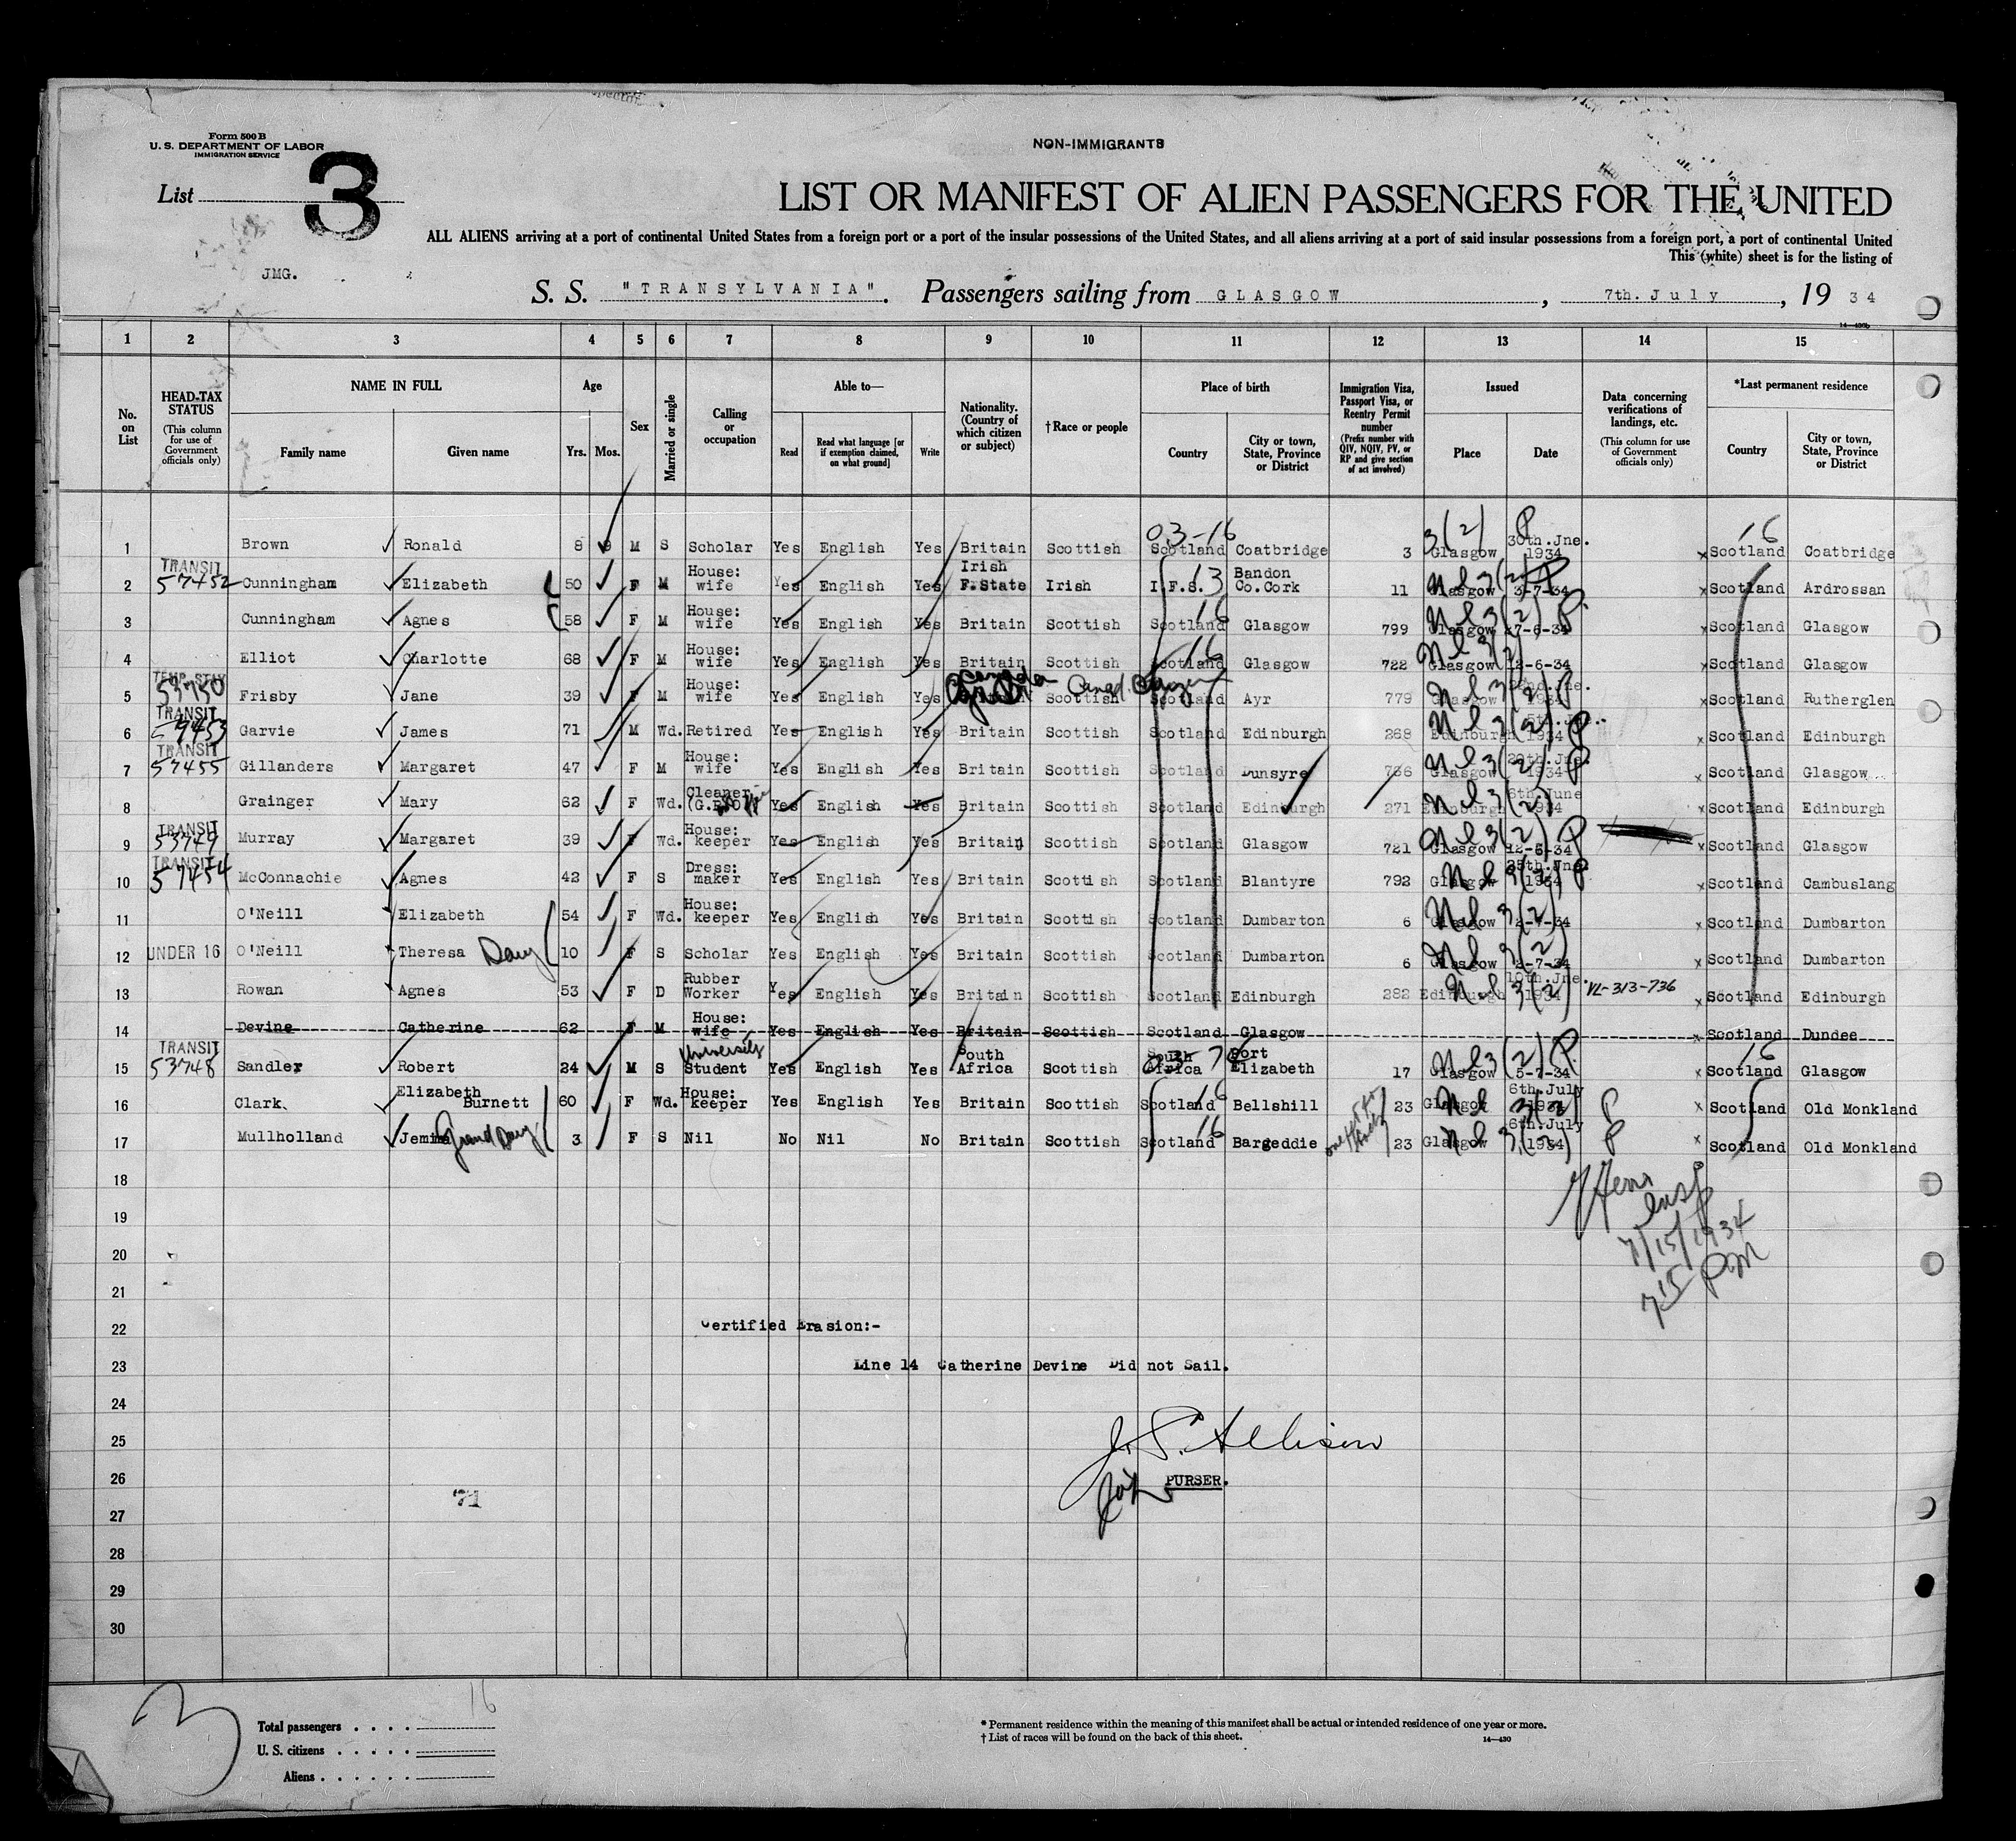 Form 500 B
U. S. DEPARTMENT OF LABOR
IMMIGRATION SERVICE
NON-IMMIGRANTS
List 3
LIST OR MANIFEST OF ALIEN PASSENGERS FOR THE UNITED
ALL ALIENS arriving at a port of continental United States from a foreign port or a port of the insular possessions of the United States, and all aliens arriving at a port of said insular possessions from a foreign port, a port of continental United
This (white) sheet is for the listing of
JMG.
S. S. "TRANSYLVANIA". Passengers sailing from GLASGOW, 7th. July, 19 34
14—430b
1 2 3 4 5 6 7 8 9 10 11 12 13 14 15
No. on List
HEAD-TAX STATUS (This column for use of Government officials only)
NAME IN FULL Family name Given name
Age Yrs. Mos.
Sex
Married or single
Calling or occupation
Able to— Read Read what language [or if exemption claimed, on what ground] Write
Nationality. (Country of which citizen or subject)
†Race or people
Place of birth Country City or town, State, Province or District
Immigration Visa, Passport Visa, or Reentry Permit number (Prefix number with QIV, NQIV, PV, or RP and give section of act involved)
Issued Place Date
Data concerning verifications of landings, etc. (This column for use of Government officials only)
*Last permanent residence Country City or town, State, Province or District
1 Brown Ronald 8 9 M S Scholar Yes English Yes Britain Scottish 03-16 Scotland Coatbridge 3 3(2) Glasgow P 30th.Jne. 1934 x 16 Scotland Coatbridge
2 TRANSIT 57452 Cunningham Elizabeth 50 F M House: wife Yes English Yes Irish F.State Irish I.F.S. 13 Bandon Co.Cork 11 Glasgow 3-7-34 x Scotland Ardrossan
3 Cunningham Agnes 58 F M House: wife Yes English Yes Britain Scottish Scotland 16 Glasgow 799 Glasgow 27-6-34 x Scotland Glasgow
4 Elliot Charlotte 68 F M House: wife Yes English Yes Britain Scottish Scotland 16 Glasgow 722 Glasgow 12-6-34 x Scotland Glasgow
5 TEMP. STAY 53750 Frisby Jane 39 F M House: wife Yes English Yes Canada Scottish Scotland Ayr 779 Glasgow 22nd.Jne. 1934 x Scotland Rutherglen
6 TRANSIT 57453 Garvie James 71 M Wd. Retired Yes English Yes Britain Scottish Scotland Edinburgh 268 Edinburgh 5th.Jne. 1934 x Scotland Edinburgh
7 TRANSIT 57455 Gillanders Margaret 47 F M House: wife Yes English Yes Britain Scottish Scotland Dunsyre 786 Glasgow 1934 x Scotland Glasgow
8 Grainger Mary 62 F Wd. Cleaner English Yes Britain Scottish Scotland Edinburgh 271 Edinburgh 6th.June 1934 x Scotland Edinburgh
9 TRANSIT 53749 Murray Margaret 39 F Wd. House: keeper Yes English Yes Britain Scottish Scotland Glasgow 721 Glasgow 12-6-34 x Scotland Glasgow
10 TRANSIT 57454 McConnachie Agnes 42 F S Dress: maker Yes English Yes Britain Scottish Scotland Blantyre 792 Glasgow 25th.Jne. 1934 x Scotland Cambuslang
11 O'Neill Elizabeth 54 F Wd. House: keeper Yes English Yes Britain Scottish Scotland Dumbarton 6 Glasgow 2-7-34 x Scotland Dumbarton
12 UNDER 16 O'Neill Theresa Daug 10 F S Scholar Yes English Yes Britain Scottish Scotland Dumbarton 6 Glasgow 2-7-34 x Scotland Dumbarton
13 Rowan Agnes 53 F D Rubber Worker Yes English Yes Britain Scottish Scotland Edinburgh 282 Edinburgh 10th.Jne. 1934 VL-313-736 x Scotland Edinburgh
14 Devine Catherine 62 F M House: wife Yes English Yes Britain Scottish Scotland Glasgow x Scotland Dundee
15 TRANSIT 53748 Sandler Robert 24 M S University Student Yes English Yes South Africa Scottish South Africa Port Elizabeth 17 Glasgow 5-7-34 x 16 Scotland Glasgow
16 Clark. Elizabeth Burnett 60 F Wd. House: keeper Yes English Yes Britain Scottish Scotland 16 Bellshill 23 Glasgow 6th.July 1934 P x Scotland Old Monkland
17 Mullholland Jemima Grand Daug 3 F S Nil No Nil No Britain Scottish Scotland 16 Bargeddie 23 Glasgow 6th.July 1934 P x Scotland Old Monkland
18
insp
19
7/15/1934
20
7 15 PM
21
22 Certified Erasion:-
23 Line 14 Catherine Devine Did not Sail.
24
25 J. P. Allison
26 PURSER.
71
27
28
29
30
3
Total passengers . . . . 16
U. S. citizens . . . . .
Aliens . . . . . .
* Permanent residence within the meaning of this manifest shall be actual or intended residence of one year or more.
† List of races will be found on the back of this sheet.
14—430